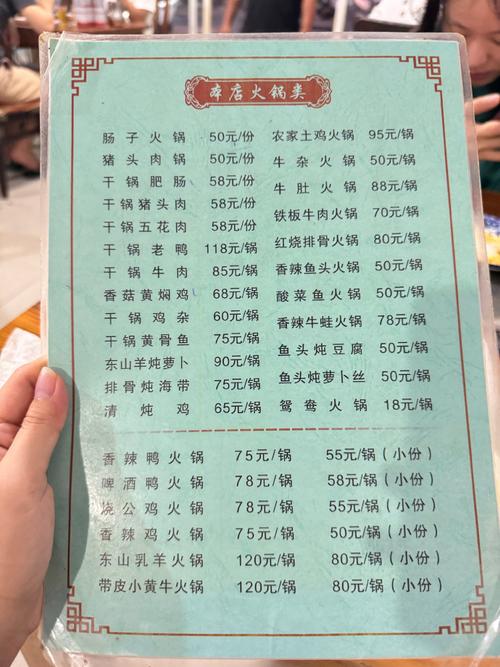 本店火锅类
肠子火锅 50元/份
猪头肉锅 50元/份
干锅肥肠 58元/份
干锅猪头肉 58元/份
干锅五花肉 58元/份
干锅老鸭 118元/锅
干锅牛肉 85元/锅
香菇黄焖鸡 68元/锅
干锅鸡杂 60元/锅
干锅黄骨鱼 75元/锅
东山羊炖萝卜 90元/锅
排骨炖海带 75元/锅
清炖鸡 65元/锅
农家土鸡火锅 95元/锅
牛杂火锅 50元/锅
牛肚火锅 88元/锅
铁板牛肉火锅 70元/锅
红烧排骨火锅 80元/锅
香辣鱼头火锅 50元/锅
酸菜鱼火锅 50元/锅
香辣牛蛙火锅 78元/锅
鱼头炖豆腐 50元/锅
鱼头炖萝卜丝 50元/锅
鸳鸯火锅 18元/锅
香辣鸭火锅 75元/锅 55元/锅（小份）
啤酒鸭火锅 78元/锅 58元/锅（小份）
烧公鸡火锅 78元/锅 55元/锅（小份）
香辣鸡火锅 75元/锅 50元/锅（小份）
东山乳羊火锅 120元/锅 80元/锅（小份）
带皮小黄牛火锅 120元/锅 80元/锅（小份）